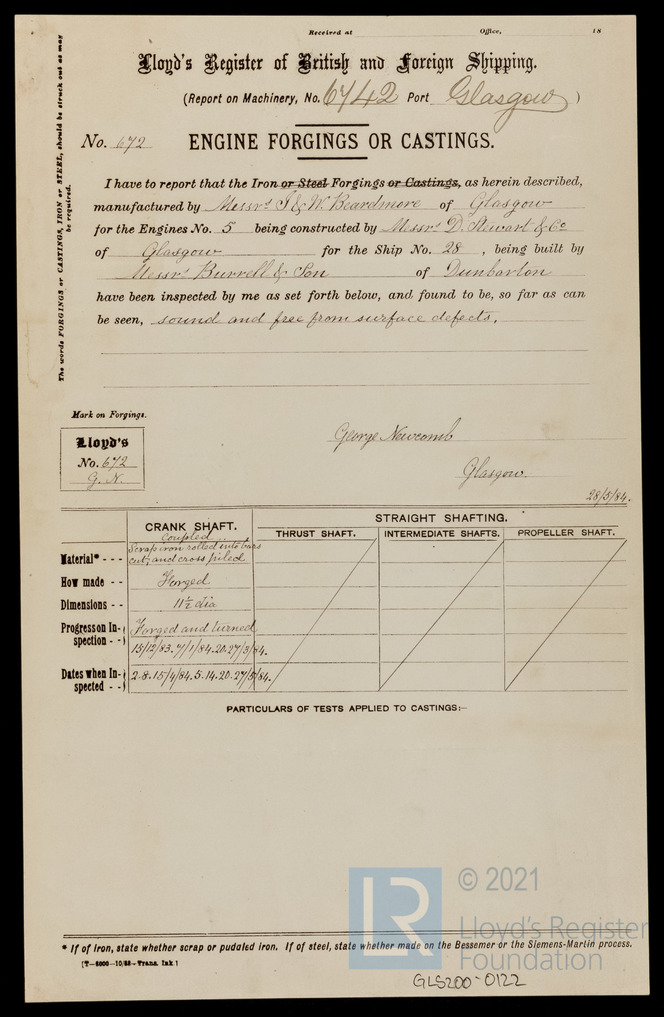 Received at Office, 18
Lloyd's Register of British and Foreign Shipping.
(Report on Machinery, No. 6742 Port Glasgow)
No. 672 ENGINE FORGINGS OR CASTINGS.
The words FORGINGS or CASTINGS, IRON or STEEL, should be struck out as may be required.
I have to report that the Iron or Steel Forgings or Castings, as herein described,
manufactured by Messrs I & W. Beardmore of Glasgow
for the Engines No. 5 being constructed by Messrs D. Stewart & Co
of Glasgow for the Ship No. 28, being built by
Messrs Burrell & Son of Dunbarton
have been inspected by me as set forth below, and found to be, so far as can
be seen, sound and free from surface defects.
Mark on Forgings.
Lloyd's
No. 672
G. N.
George Newcomb
Glasgow.
28/5/84.
CRANK SHAFT. STRAIGHT SHAFTING.
Coupled THRUST SHAFT. INTERMEDIATE SHAFTS. PROPELLER SHAFT.
Material* - - - Scrap iron rolled into bars
cut, and cross piled
How made - - Forged
Dimensions - - 11½ dia
Progress on Inspection - - Forged and turned
15/12/83. 7/1/84. 20. 27/3/84.
Dates when Inspected - - 2. 8. 15/4/84. 5. 14. 20. 27/5/84.
PARTICULARS OF TESTS APPLIED TO CASTINGS:-
© 2021
LR Lloyd's Register
Foundation
* If of iron, state whether scrap or pudaled iron. If of steel, state whether made on the Bessemer or the Siemens-Martin process.
GLS200-0122